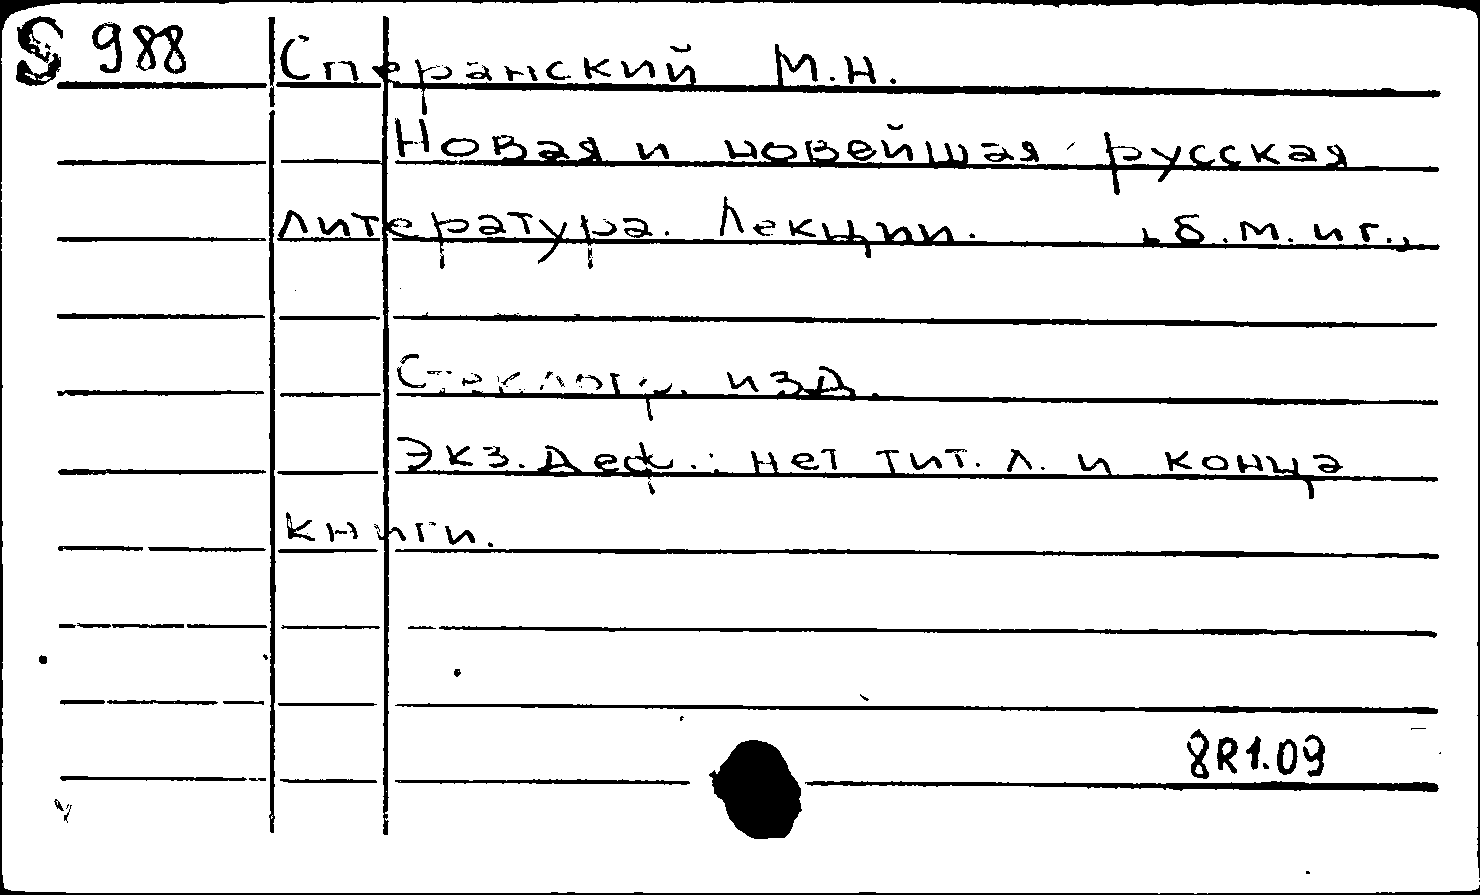 S 988 Сперанский М.Н.
Новая и новейшая русская
литература. Лекции. [б.м. и г.]
Стеклогр. изд.
Экз. деф.: нет тит. л. и конца
книги.
8R1.09